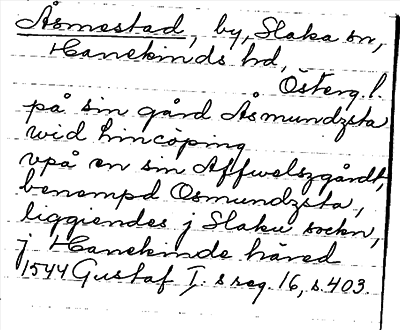 Åsmestad, by, Slaka sn,
Hanekinds hd,
Österg. l.
på sin gård Åsmundzsta
wid Lincöping
vpå en sin Affwelszgårdt,
benempd Osmundzsta,
liggiendes j Slaku sockn,
j Hanekinde häred
1544 Gustaf I:s reg. 16, s. 403.